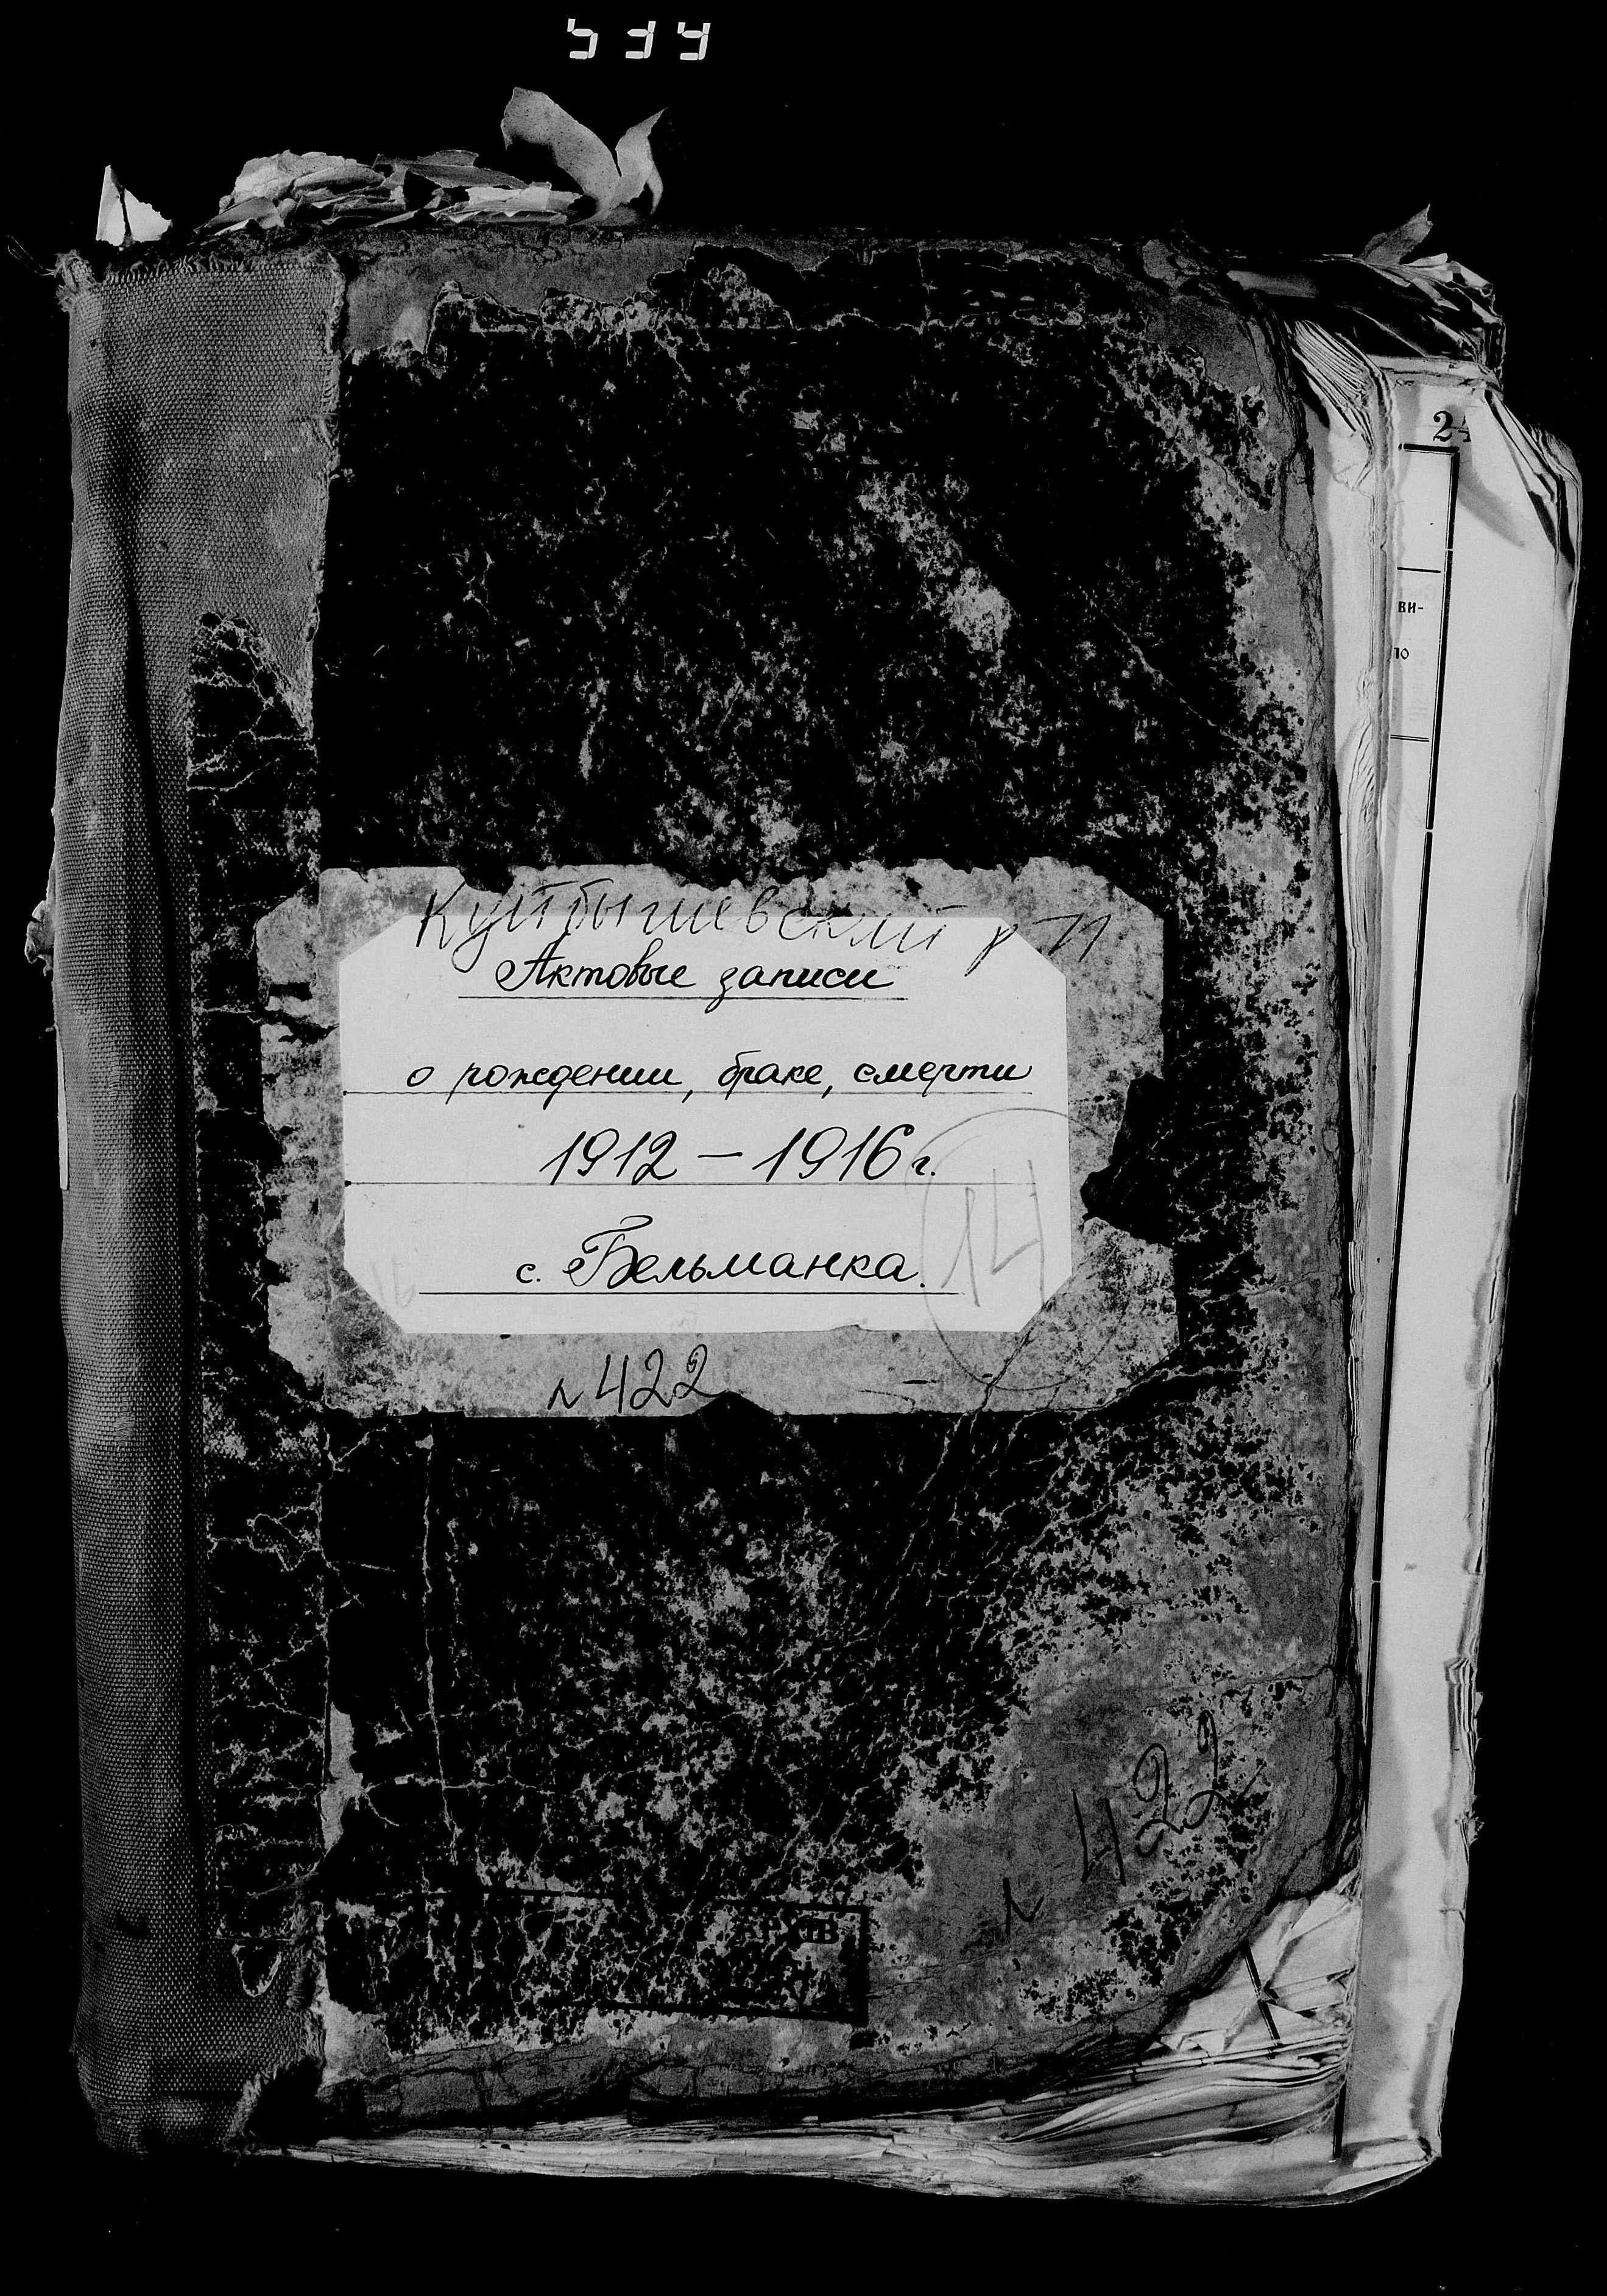 24
ви-
по
Куйбышевский р-н
Актовые записи
о рождении, браке, смерти
1912 – 1916 г.
с. Бельманка.
14
N 422
N 422
АРХІВ